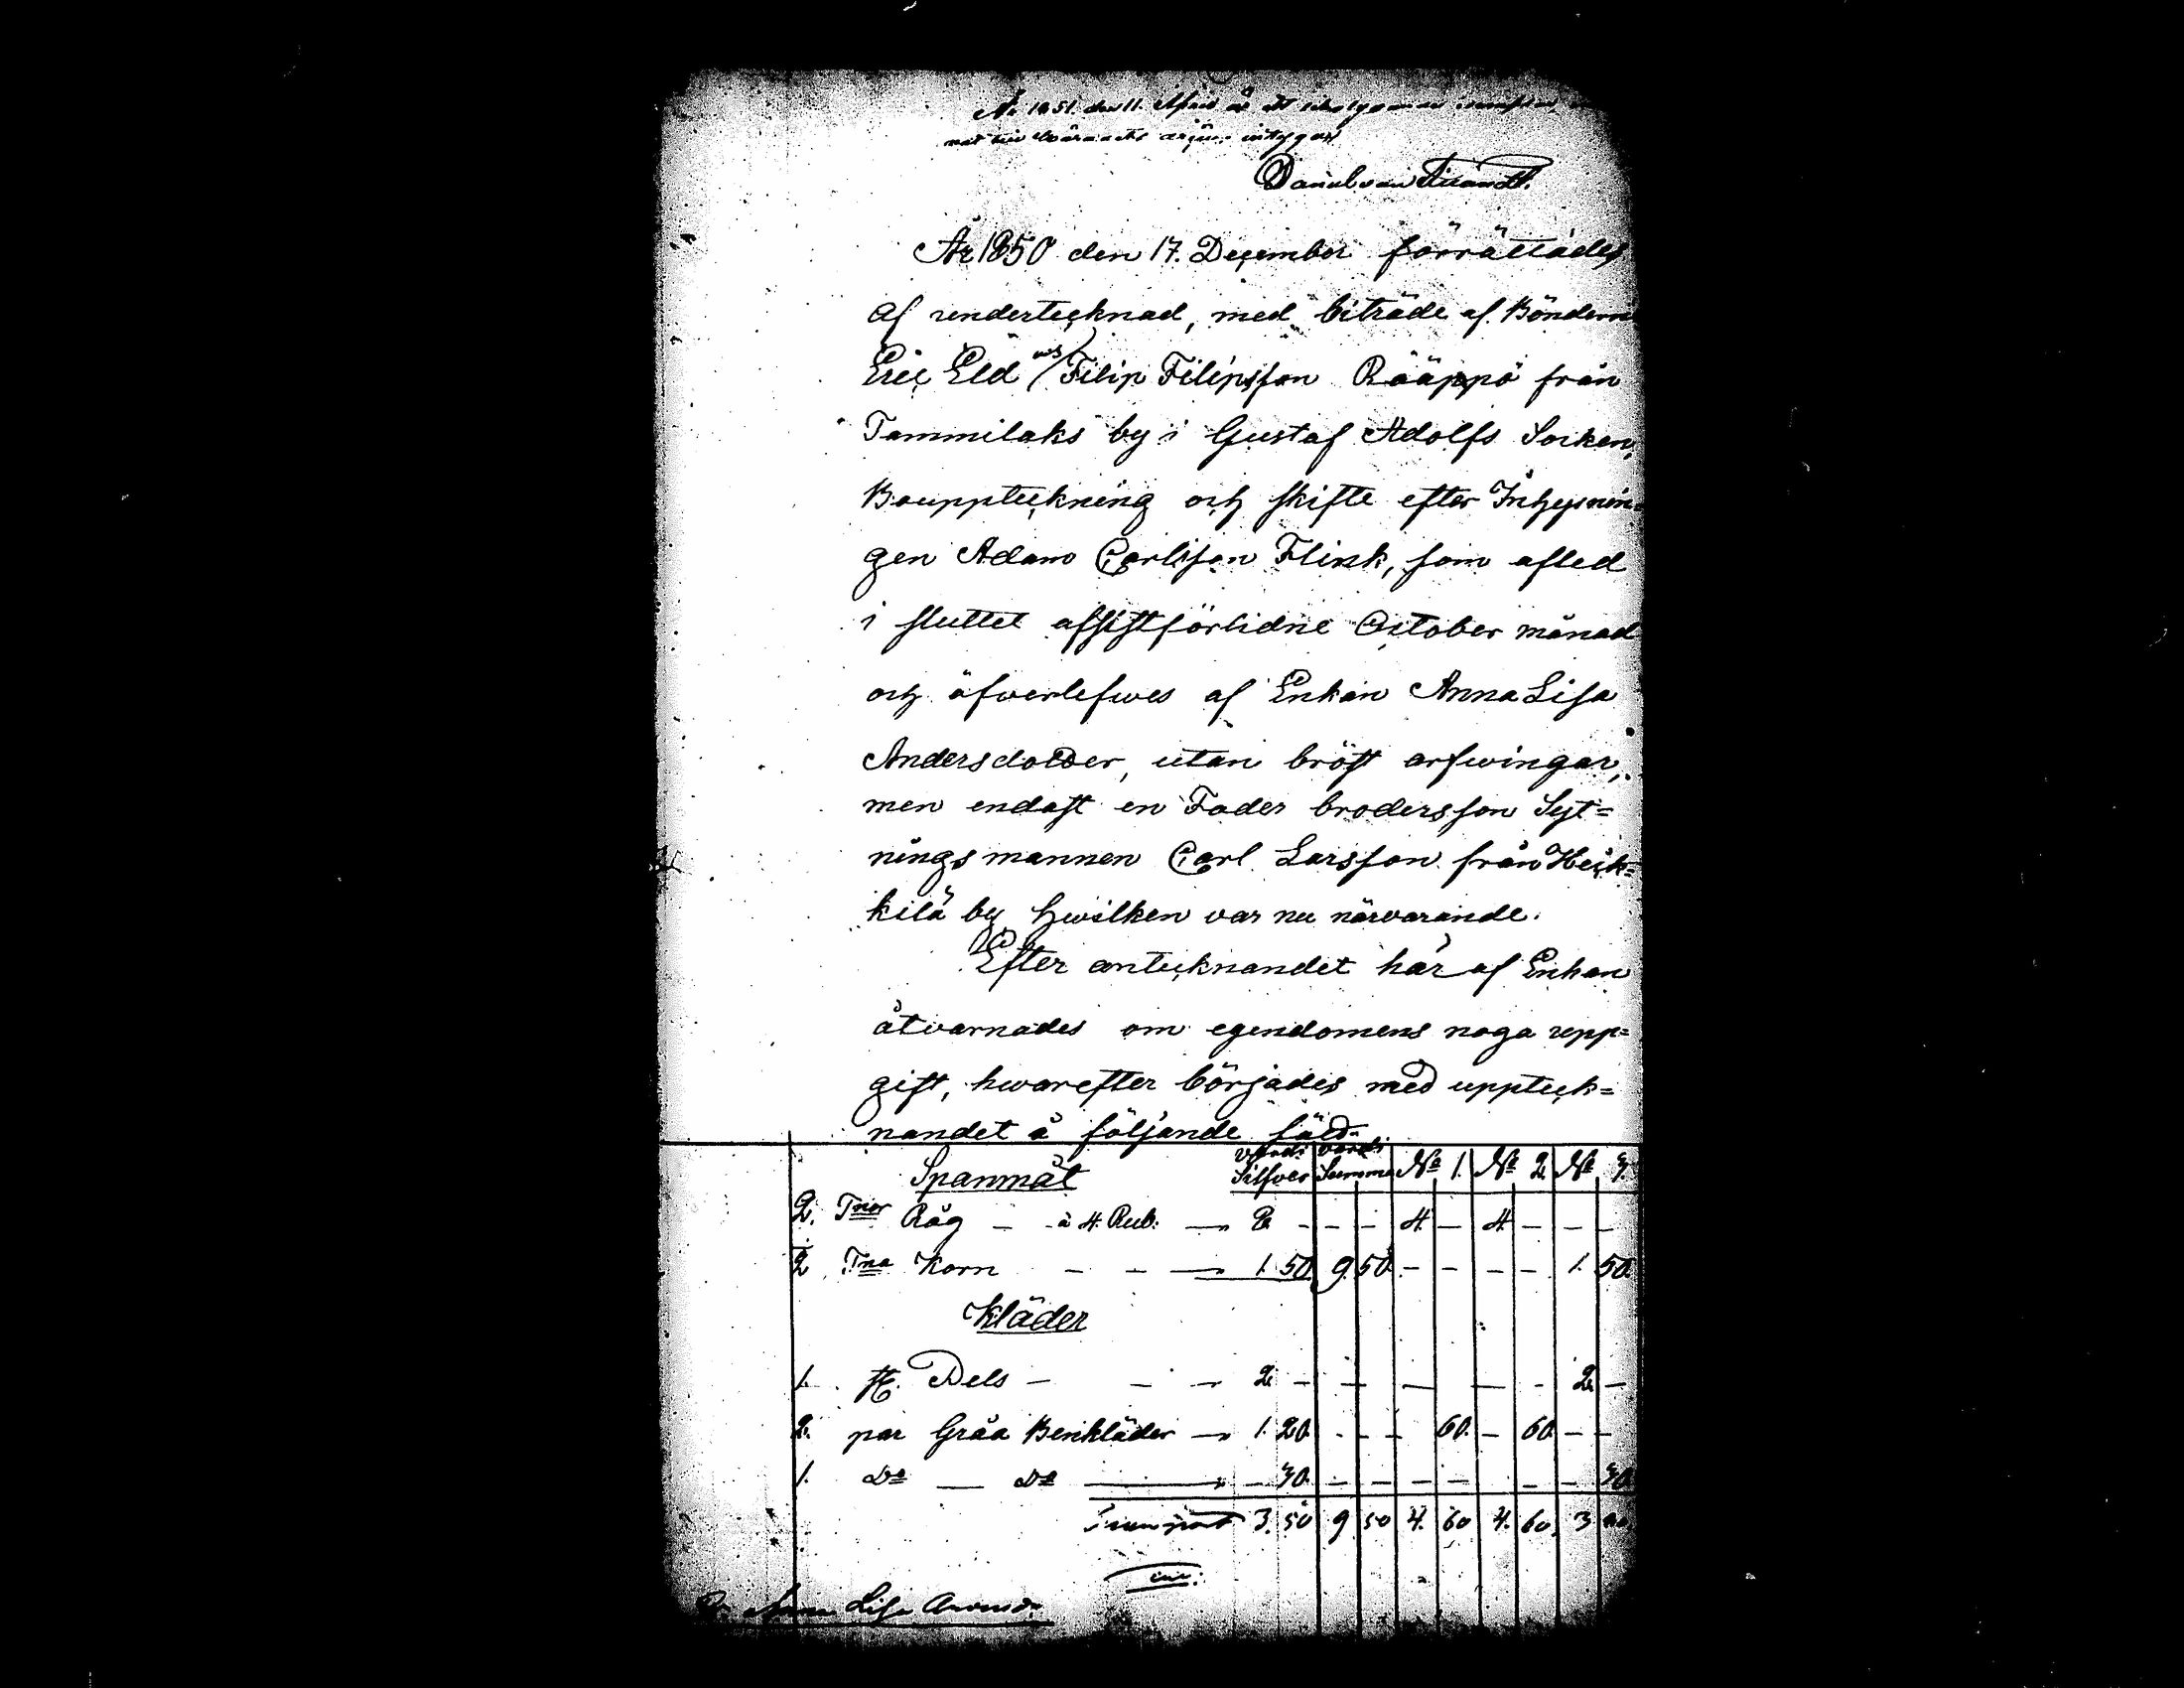 År 1851. den 11. April är
Daniel
År 1850 den 17. December förrättades
af undertecknad, med biträde af Bönderne
Eric Eld och Filip Filipsson Rääppö från
Tammilaks by i Gustaf Adolfs Socken,
Bouppteckning och skifte efter Inhysnin=
gen Adam Carlsson Flink, som afled
i sluttet af sistförlidne October månad
och öfwerlefwes af Enkan Anna Lisa
Andersdotter, utan bröst arfwingar,
men endast en Fader brodersson Syt=
ningsmannen Carl Larsson från Heik=
kilä by hwilken var nu närvarande.
Efter antecknandet här af Enkan
åtvarnades om egendomens noga upp=
gift, hwarefter börjades med uppteck=
nandet å följande sätt
Spanmål värdi Silfver värdi Summa No 1. No 2. No 3.
2. Tnor Råg — à 4. Rub: — 8 - - - 4 — 4 — - -
2 Tna Korn - - — 1. 50. 9. 50. - - - - 1. 50.
Kläder
1. st. Pels — - - 2. - - - - - 2. -
2. par Gråa Benkläder — 1. 20. - - - 60. - 60. - -
1. Do — Do — - 30. - - - - - - - 30.
Transport 3. 50 9 50 4. 60 4. 60. 3
Anna Lisa